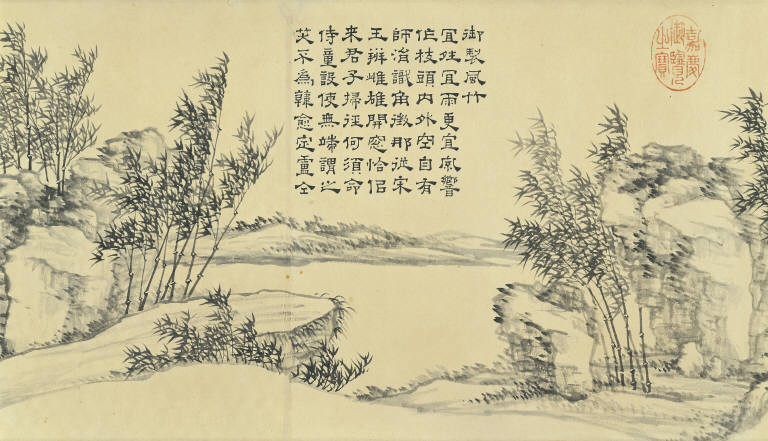 御製風竹
宜烟宜雨更宜風響
作枝頭内外空自有
師涓識角徵那從宋
玉辨雌雄開窓恰侶
來君子掃徑何須命
侍童設使無端謂之
笑不為韓愈定盧仝
嘉慶御覽之寶